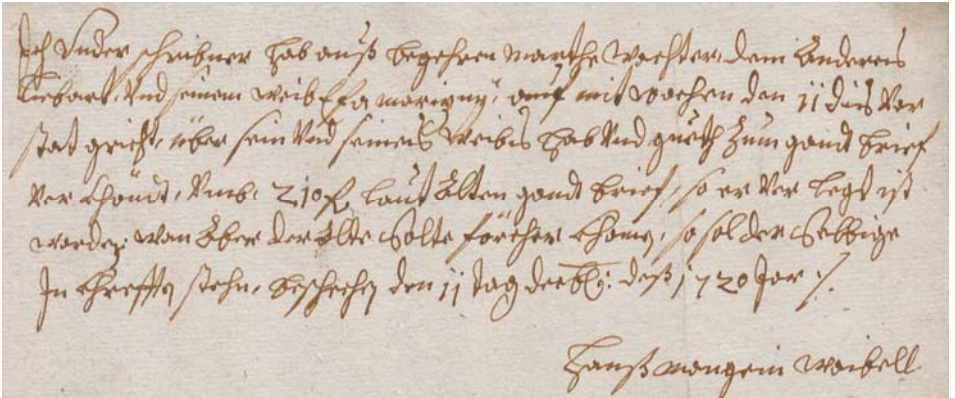 Ich Under schribner hab auß begehren Marthe wachter, dem Anderes
liebart, Und seinem weib Efa mariony, auf mitwochen den 11 dis Vor
stat gricht, über sein Und seines Weibes hab Und gueth Zum gandt brief
Ver khöndt, Umb, 210 fl, laut Alten gandt brief, so er Ver legt ist
worden, wan Aber der Alte Solte fürcher khomen, so sol der Selbige
In khrefften stehn, bescheehen den 11 tag decb: deß 1720 Jar ./.
Hanß mongein waibell